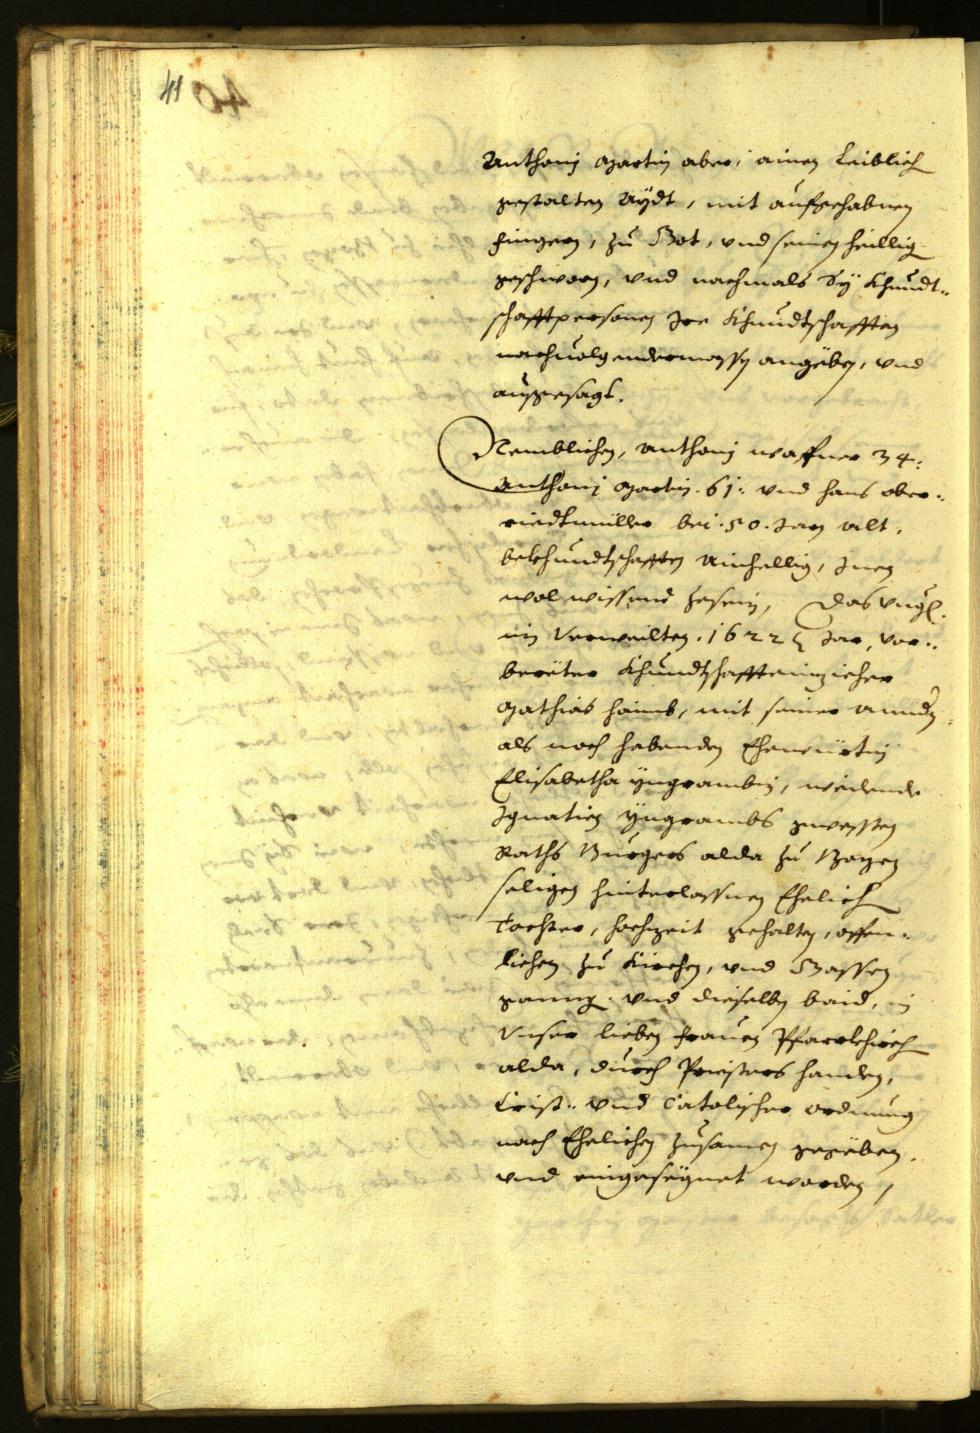 41
Anthonj Martin aber, ainen Leiblich
gestalten Aÿdt, mit aufgehabnen
fingern, zu Got, vnd seinen heillig:
geschworn, vnd nachmals Sÿ Khundt„
schafftpersonen Jre Khundtschafften
nachuolgendermassen angeben, vnd
außgesagt.
Nemblichen, Anthonj Waffner 34:
Anthonj Martin. 61: vnd Hans Ober„
riedtmüller bei .50. Jarn alt,
bekhundtschafften Ainhellig, Jnen
wol wissend zesein, Das
im verweilten .1622 Jar, vor„
berüter Khundtschaffteinzieher
Mathias haimb, mit seiner
als noch habenden Ehewürtin
Elisabetha Ÿngrambin, weilende
Jgnatien Ÿngrambs gwessten
Raths Burgers alda zu Bozen
seligen hinterlassnen Ehelich
Tochter, hochzeit gehalten, offen„
lichen zu Kirchen, vnd Gassen
ganng. vnd dieselben baid, in
Vnser lieben frauen Pfarrkhirch
alda, durch Priesters handen,
Crist„ vnd Catolischer ordnung
nach Ehelichen zusamen gegeben,
vnd eingesegnet worden,